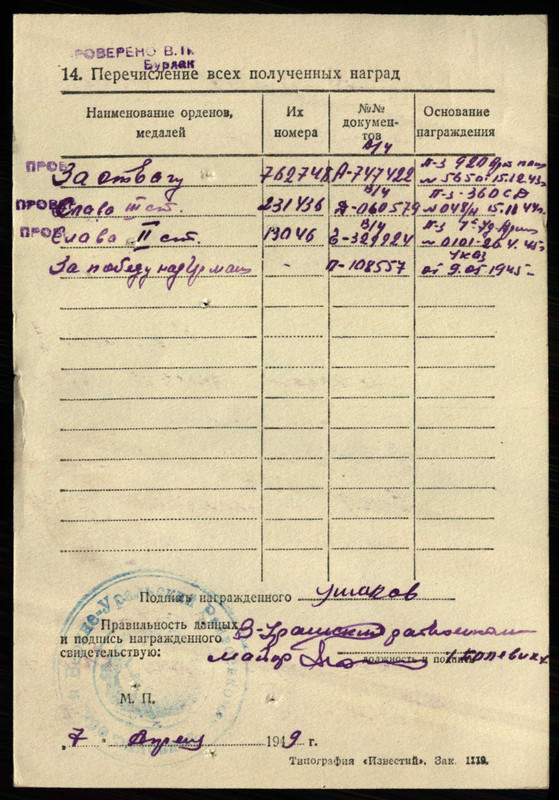 ПРОВЕРЕНО В.П.
Бурлак
14. Перечисление всех полученных наград
Наименование орденов, медалей
Их номера
№№ документов
Основание награждения
ПРОВ
За отвагу 762748 в/ч А-747422 П-з 920
№ 565 от 15.12.43
ПРОВ
Слава III ст. 231436 в/ч Д-060579 П-з 360 СД
№ 048/н 15.11.44
ПРОВ
Слава II ст. 13046 в/ч Б-329224 П-з
№ 0101 - 20.4.45
За победу над Герман - П-108557 Указ
от 9.05.1945
Подпись награжденного Ушаков
Правильность данных
и подпись награжденного
свидетельствую:
В-Уральский райвоенком
майор
должность и подпись
М. П.
„7 Апрель 1949 г.
Типография «Известий». Зак. 1119.